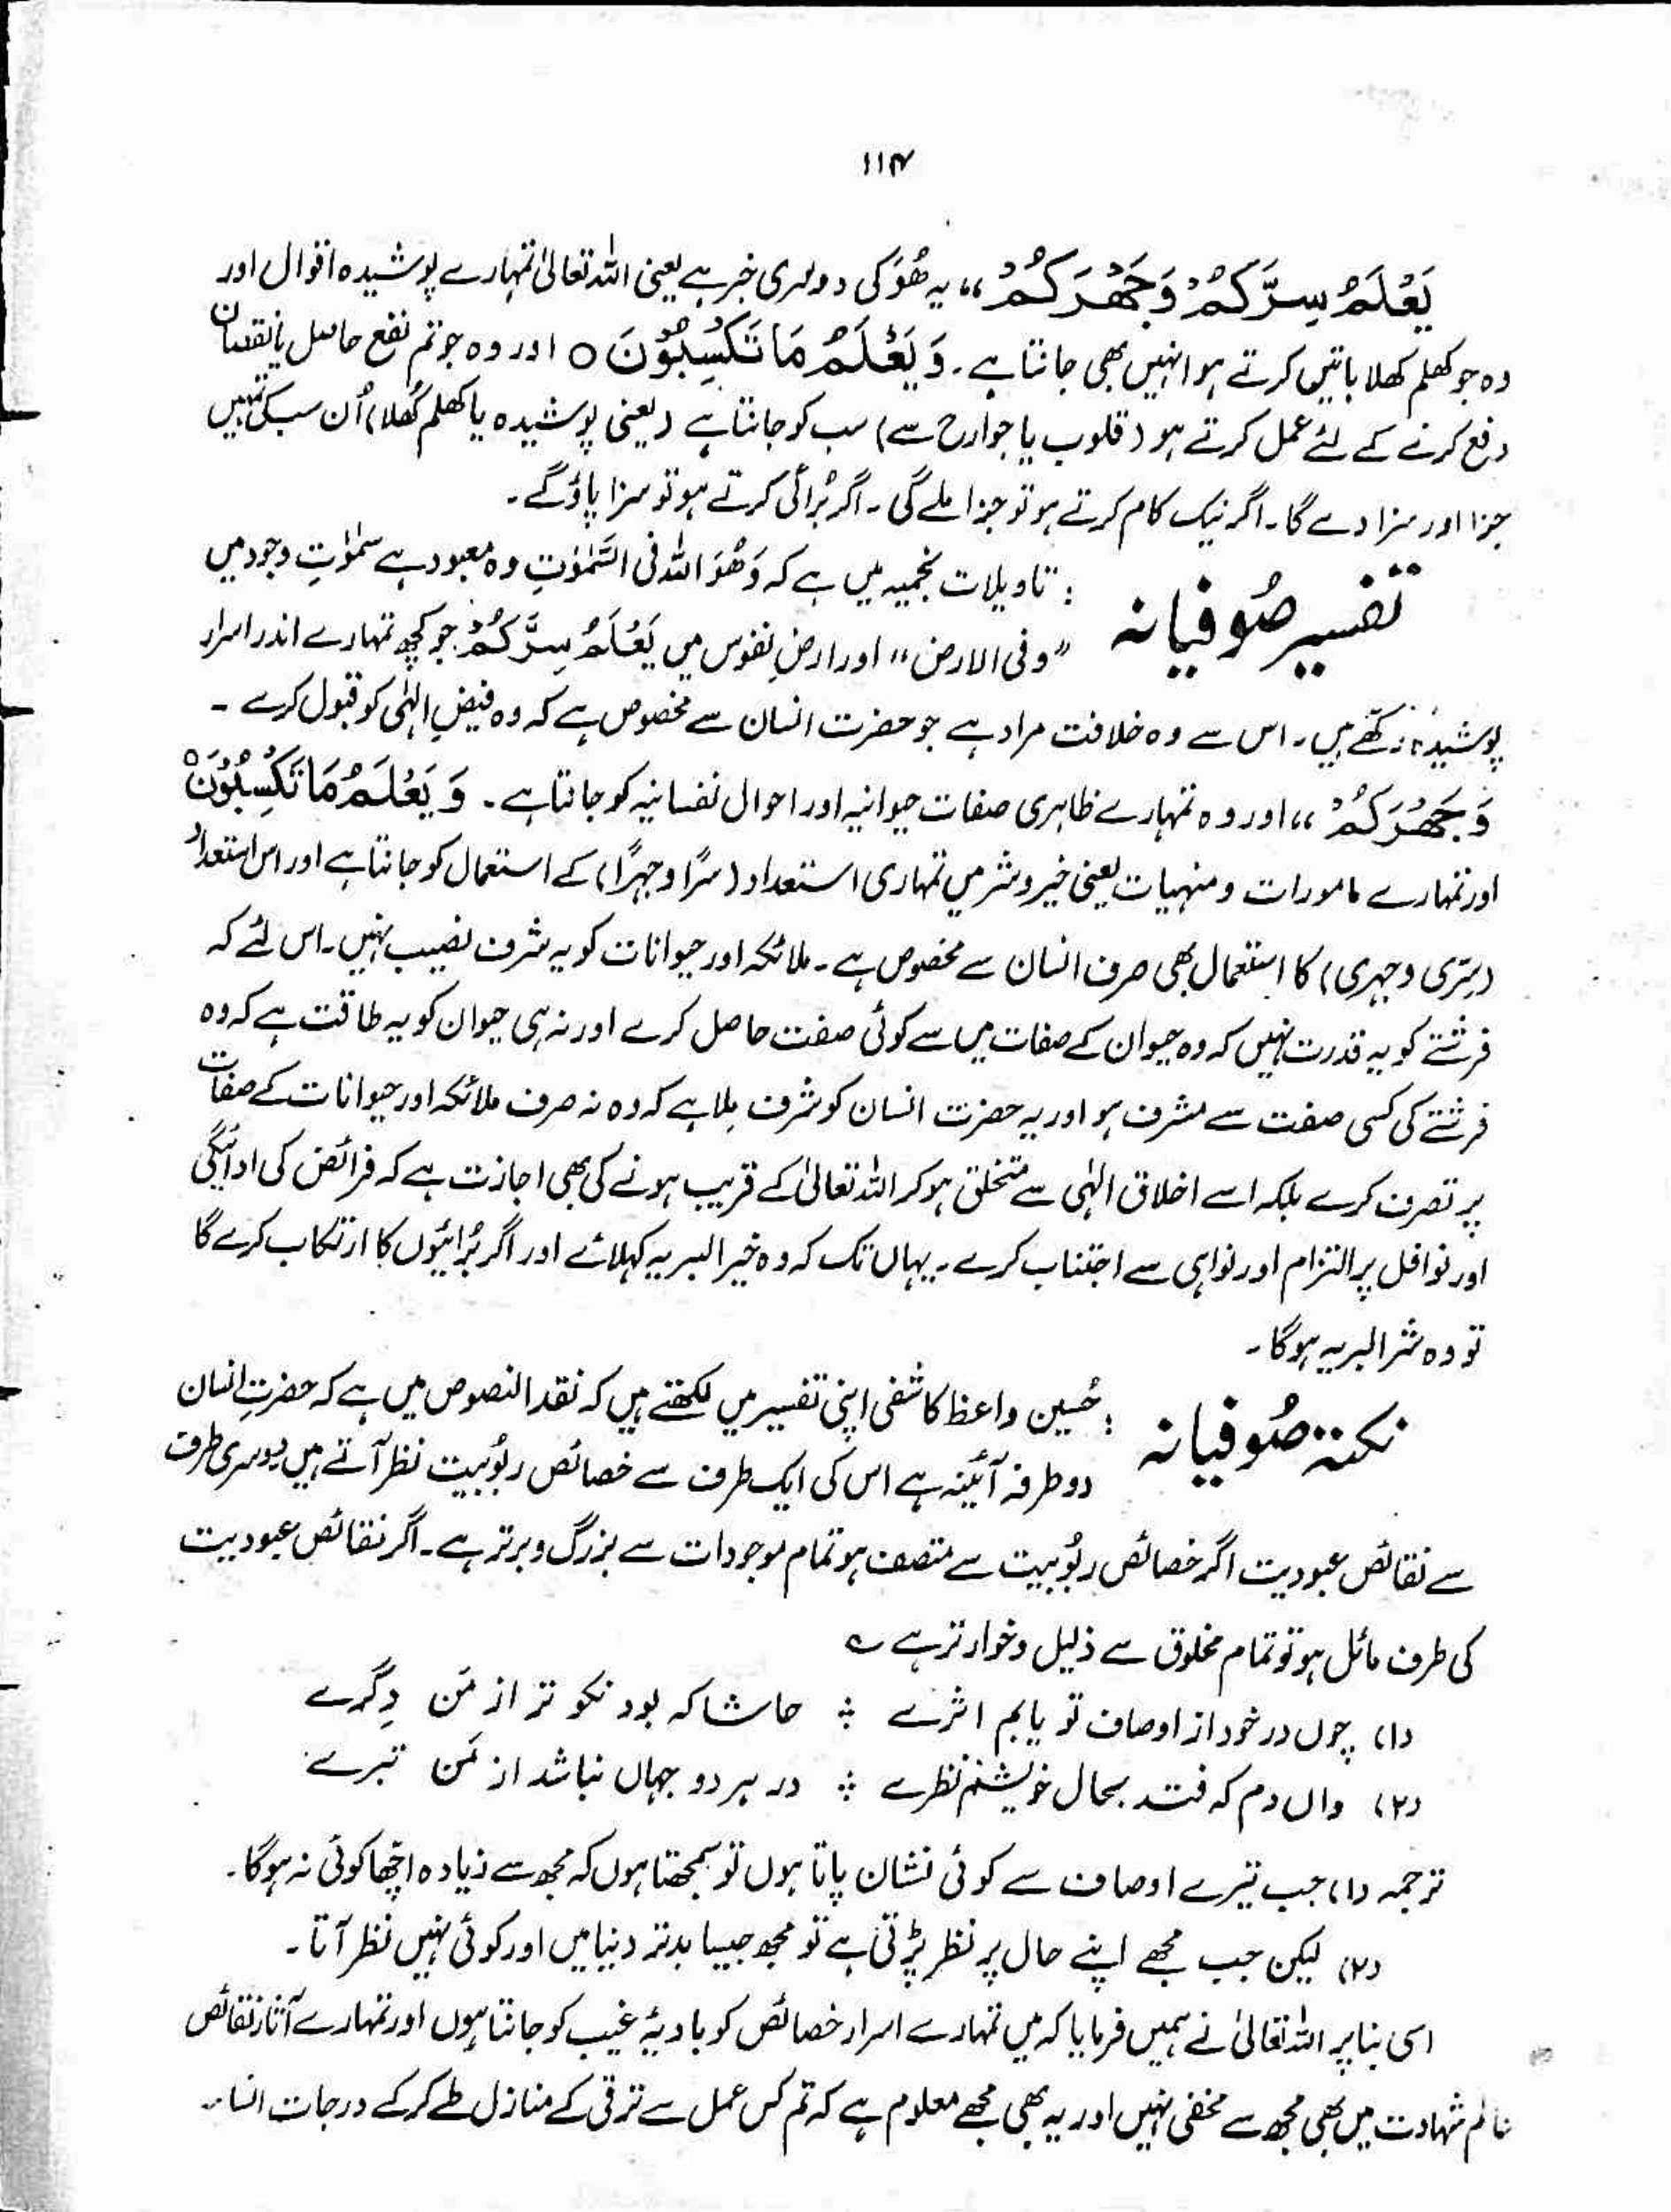 ۱۱۴
یَعْلَمُ سِرَّکُمْ وَجَهْرَکُمْ ،، یہ ھُوَ کی دوسری خبر ہے یعنی اللہ تعالیٰ تمہارے پوشیدہ اقوال اور
وہ جو کھلم کھلا باتیں کرتے ہو انہیں بھی جانتا ہے۔ وَیَعْلَمُ مَا تَکْسِبُوْنَ ○ اور وہ جو تم نفع حاصل یا نقصان
دفع کرنے کے لئے عمل کرتے ہو (قلوب یا جوارح سے) سب کو جانتا ہے (یعنی پوشیدہ یا کھلم کھلا) اُن سب کی تمہیں
جزا اور سزا دے گا۔ اگر نیک کام کرتے ہو تو جزا ملے گی۔ اگر بُرائی کرتے ہو تو سزا پاؤ گے۔
تفسیر صُوفیانہ : تاویلات نجمیہ میں ہے کہ وَھُوَ اللہ فی السَّمٰوٰتِ وہ معبود ہے سمٰوٰتِ وجود میں
”وفی الارض“ اور ارضِ نفوس میں یَعْلَمُ سِرَّکُمْ جو کچھ تمہارے اندر اسرار
پوشیدہ رکھے ہیں۔ اس سے وہ خلافت مراد ہے جو حضرت انسان سے مخصوص ہے کہ وہ فیضِ الٰہی کو قبول کرے۔
وَجَهْرَکُمْ ،، اور وہ تمہارے ظاہری صفات حیوانیہ اور احوال نفسانیہ کو جانتا ہے۔ وَیَعْلَمُ مَا تَکْسِبُوْنَ ○
اور تمہارے مامورات و منہیات یعنی خیر و شر میں تمہاری استعداد (سرًا وجہرًا) کے استعمال کو جانتا ہے اور اس استعداد
(سِرّی وجہری) کا استعمال بھی صرف انسان سے مخصوص ہے۔ ملائکہ اور حیوانات کو یہ شرف نصیب نہیں۔ اس لئے کہ
فرشتے کو یہ قدرت نہیں کہ وہ حیوان کے صفات میں سے کوئی صفت حاصل کرے اور نہ ہی حیوان کو یہ طاقت ہے کہ وہ
فرشتے کی کسی صفت سے مشرف ہو اور یہ حضرت انسان کو شرف ملا ہے کہ وہ نہ صرف ملائکہ اور حیوانات کے صفات
پر تصرف کرے بلکہ اسے اخلاق الٰہی سے متخلق ہو کر اللہ تعالیٰ کے قریب ہونے کی بھی اجازت ہے کہ فرائض کی ادائیگی
اور نوافل پر التزام اور نواہی سے اجتناب کرے۔ یہاں تک کہ وہ خیر البریہ کہلائے اور اگر بُرائیوں کا ارتکاب کرے گا
تو وہ شر البریہ ہو گا۔
نکتہ صُوفیانہ : حُسین واعظ کاشفی اپنی تفسیر میں لکھتے ہیں کہ نقد النصوص میں ہے کہ حضرتِ انسان
دو طرفہ آئینہ ہے اس کی ایک طرف سے خصائص ربُوبیت نظر آتے ہیں دوسری طرف
سے نقائص عبودیت اگر خصائص ربُوبیت سے متصف ہو تمام موجودات سے بزرگ و برتر ہے۔ اگر نقائص عبودیت
کی طرف مائل ہو تو تمام مخلوق سے ذلیل و خوار تر ہے ؎
(۱) چوں در خود از اوصاف تو یابم اثرے ؞ حاشا کہ بود نکو تر از مَن دِگرے
(۲) واں دم کہ فتد بحال خویشنم نظرے ؞ در ہر دو جہاں نباشد از مَن تبرے
ترجمہ (۱) جب تیرے اوصاف سے کوئی نشان پاتا ہوں تو سمجھتا ہوں کہ مجھ سے زیادہ اچھا کوئی نہ ہوگا۔
(۲) لیکن جب مجھے اپنے حال پر نظر پڑتی ہے تو مجھ جیسا بدتر دنیا میں اور کوئی نہیں نظر آتا۔
اسی بنا پر اللہ تعالیٰ نے ہمیں فرمایا کہ میں تمہارے اسرار خصائص کو بادیۂ غیب کو جانتا ہوں اور تمہارے آثار نقائص
عالم شہادت میں بھی مجھ سے مخفی نہیں اور یہ بھی مجھے معلوم ہے کہ تم کس عمل سے ترقی کے منازل طے کر کے درجات